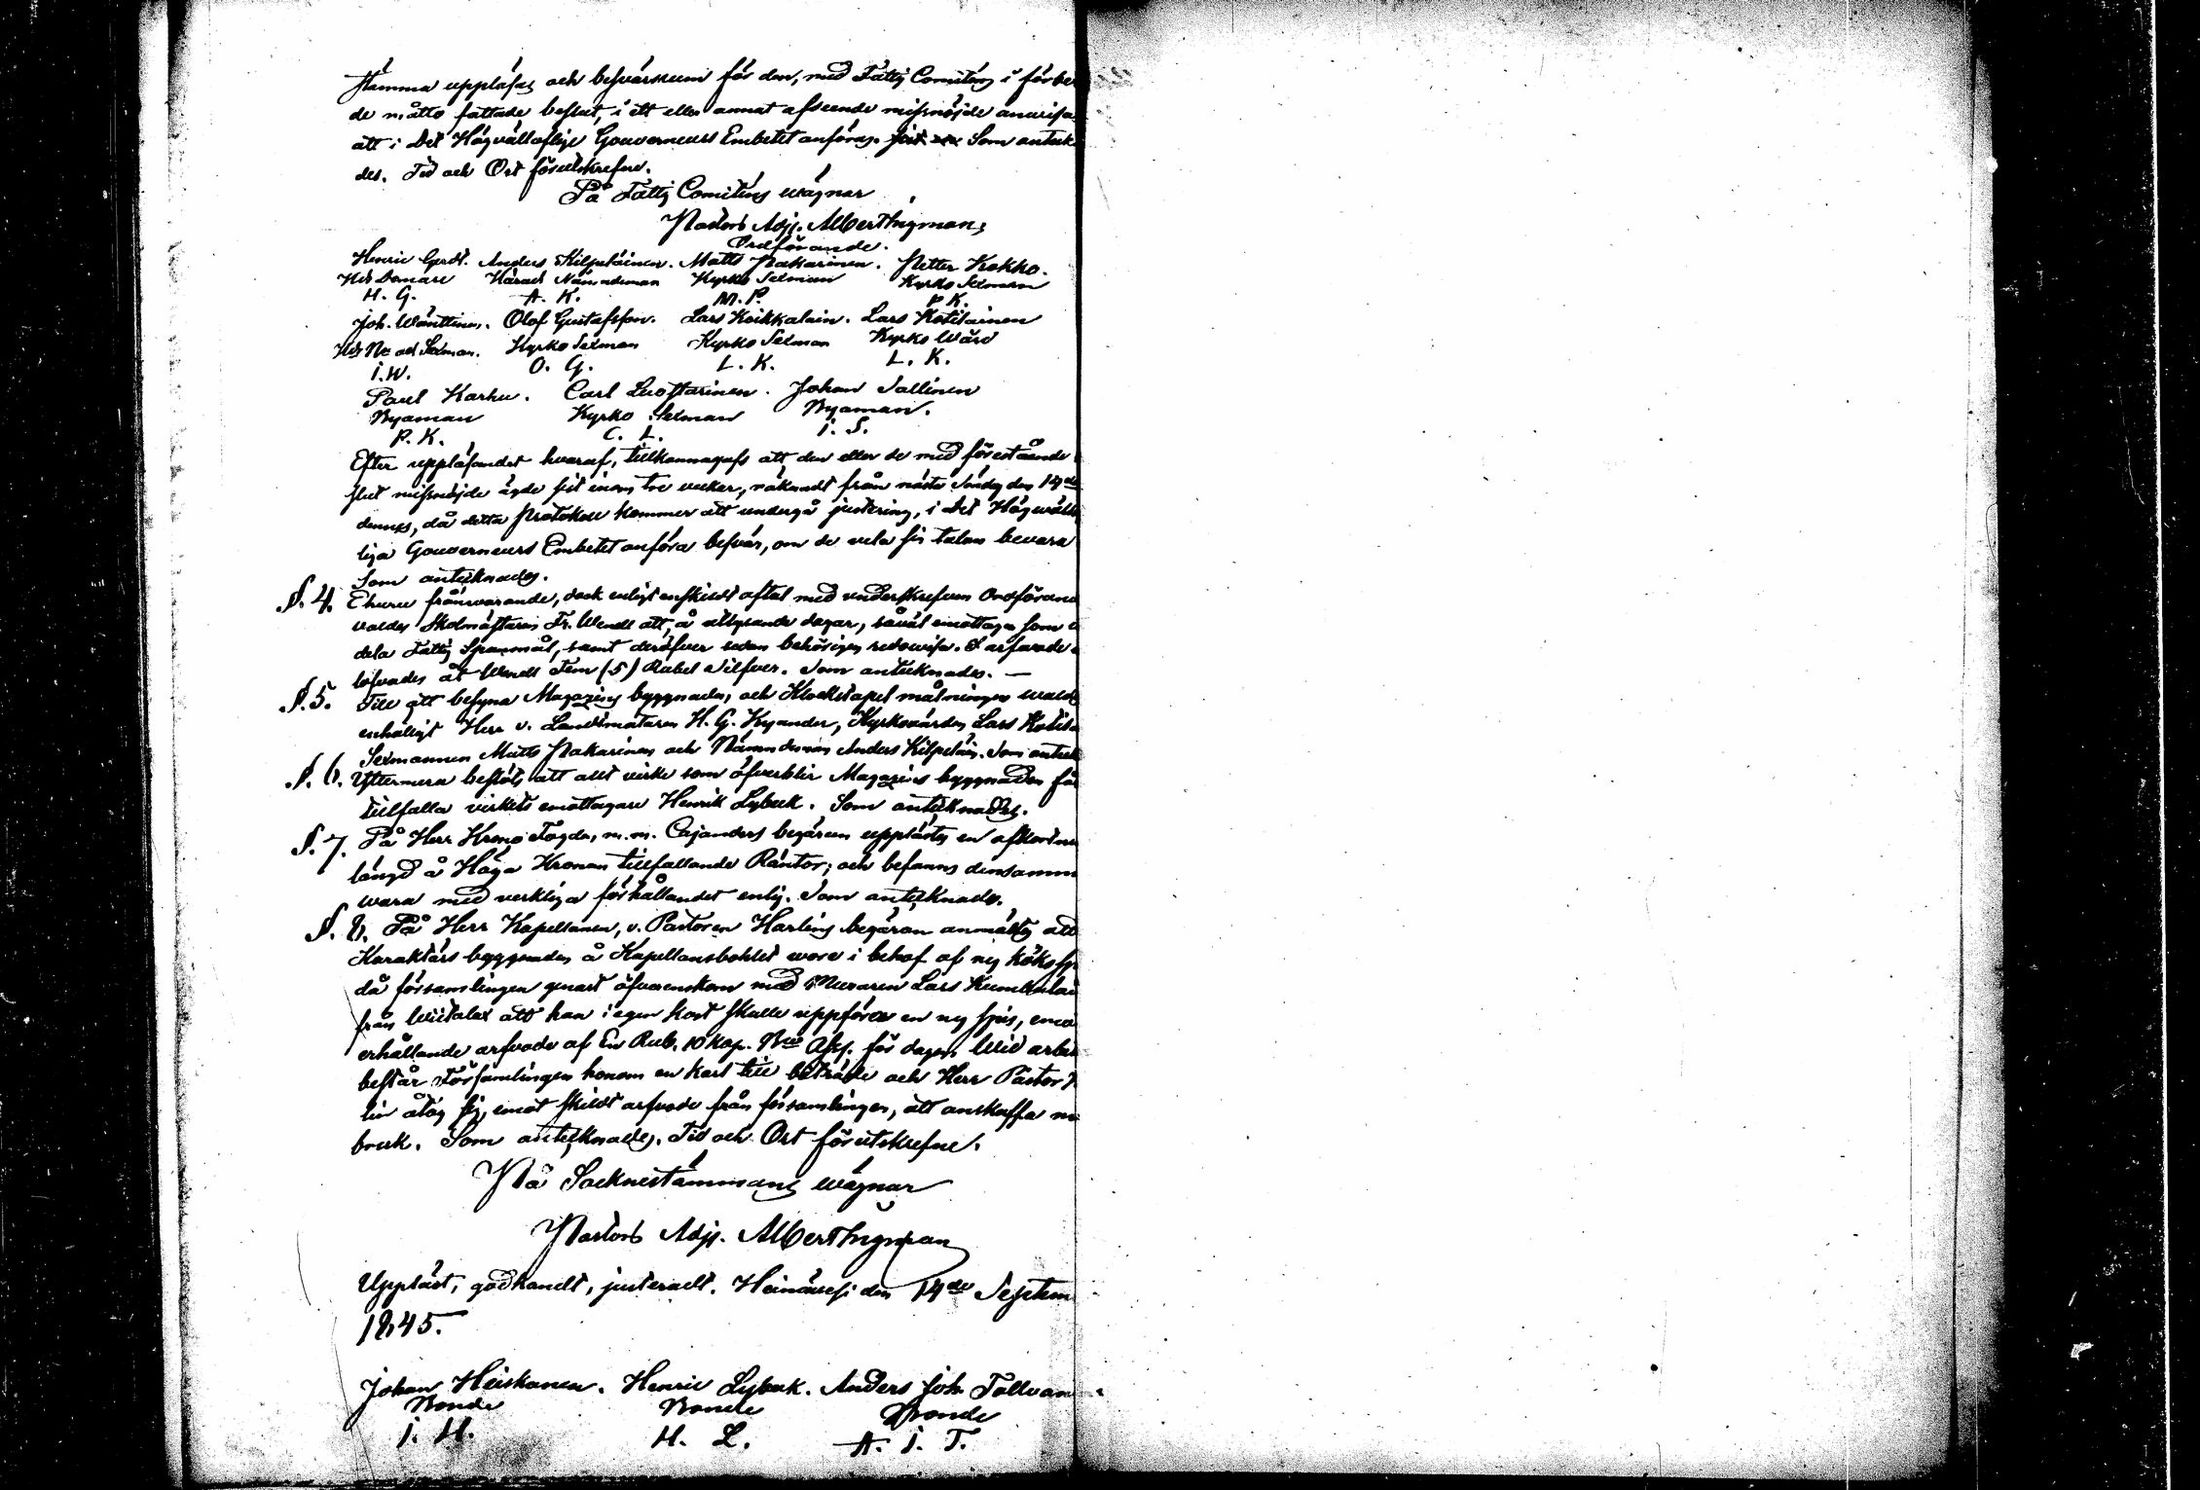 stämma uppläsas och besvärsrum för den, med Fattig Comiténs i förbe
de måtto fattade beslut, i ett eller annat afseende missnöjde anvisa
att i Det Högvällofliga Gouverneurs Embetet anföras. Som anteck
des. Tid och Ort förutskrefne.
På Fattig Comiténs wägnar
Pastors Adj. Albert Ingman,
Ordförande.
Henric Gerdt. Anders Kilpeläinen. Matts Pakarinen. Petter Kokko.
Härads Nämndeman Kyrko Sexman Kyrko Sexman
H. G. A. K. M. P. P. K.
Joh. Wänttinen. Olof Gustafsson. Lars Koikkalain. Lars Kotilainen
Kyrko Sexman Kyrko Sexman Kyrko Wärd
I. W. O. G. L. K. L. K.
Paul Karhu. Carl Luostarinen. Johan Sallinen
Byaman Kyrko Sexman Byaman.
P. K. C. L. I. S.
Efter uppläsandet hvaraf, tillkännagafs att den eller de med förestående
slut missnöjde ägde sist inom tre veckor, räknadt från nästa Söndag den 14de
dennes, då detta protokoll kommer att undergå justering, i Det Högwällof
liga Gouverneurs Embetet anföra besvär, om de vela sin talan bevara
Som antecknades.
§. 4. Ehuru frånvarande, dock enligt enskildt aftal med underskrefven Ordförand
valdes Skolmästaren Fr. Wendt att, å utlysande dagar, såväl emottaga som
dela Fattig Spannmål, samt deröfver sedan behörigen redovisa. I arfvode
löfvades åt Wendt Fem (5) Rubel Silfver. Som antecknades. —
§. 5. Till att besyna Magazins byggnaden, och Klockstapel målningen walde
enhälligt Herr v. Landtmätaren H. G. Kyander, Kyrkovärden Lars Kotila
Sexmannen Matts Pakarinen och Nämndeman Anders Kilpeläin. Som anteck
§. 6. Yttermera beslöts att allt virke som öfverblir Magazins byggnaden får
tillfalla virkets emottagare Henrik Lybeck. Som antecknades.
§. 7. På Herr Krono Fogden, m. m. Cajanders begäran upplästes en afkortn
längd å Höga Kronan tillfallande Räntor; och befanns densamm
wara med verkliga förhållandet enlig. Som antecknades.
§. 8. På Herr Kapellanen, v. Pastoren Harlins begäran anmältes att
Karaktärs byggnaden å Kapellansbohlet wore i behof af ny köksspi
då församlingen genast öfverenskom med Muraren Lars
från att han i egen kost skulle uppföra en ny spis, emo
erhållande arfvode af En Rub. 10 kop. Bco Ass. för dagen. Wid arbe
består Församlingen honom en karl till biträde och Herr Pastor
lin åtog sig, emot skildt arfvode från församlingen, att anskaffa
bruk. Som antecknades. Tid och Ort förutskrefne.
På Socknestämmans wägnar
Pastors Adj. Albert Ingman
Uppläst, godkändt, justeradt. Heinävesi den 14de Septem
1845.
Johan Heiskanen. Henric Lybeck. Anders Joh. Tallvan
Bonde Bonde Bonde
I. H. H. L. A. I. T.